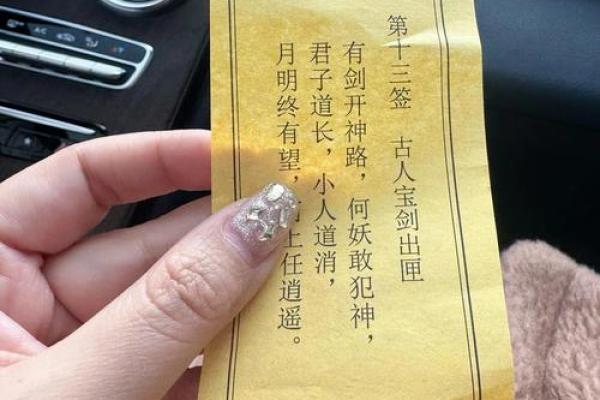 第十三签 古人宝剑出匣
有剑开神路，何妖敢犯神，
君子道长，小人道消，
月明终有望，上任逍遥。